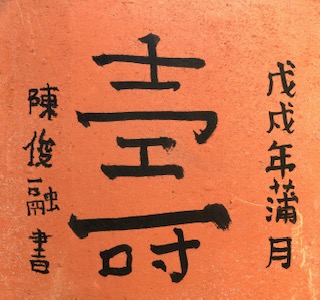 戊戌年蒲月
壽
陳俊融書